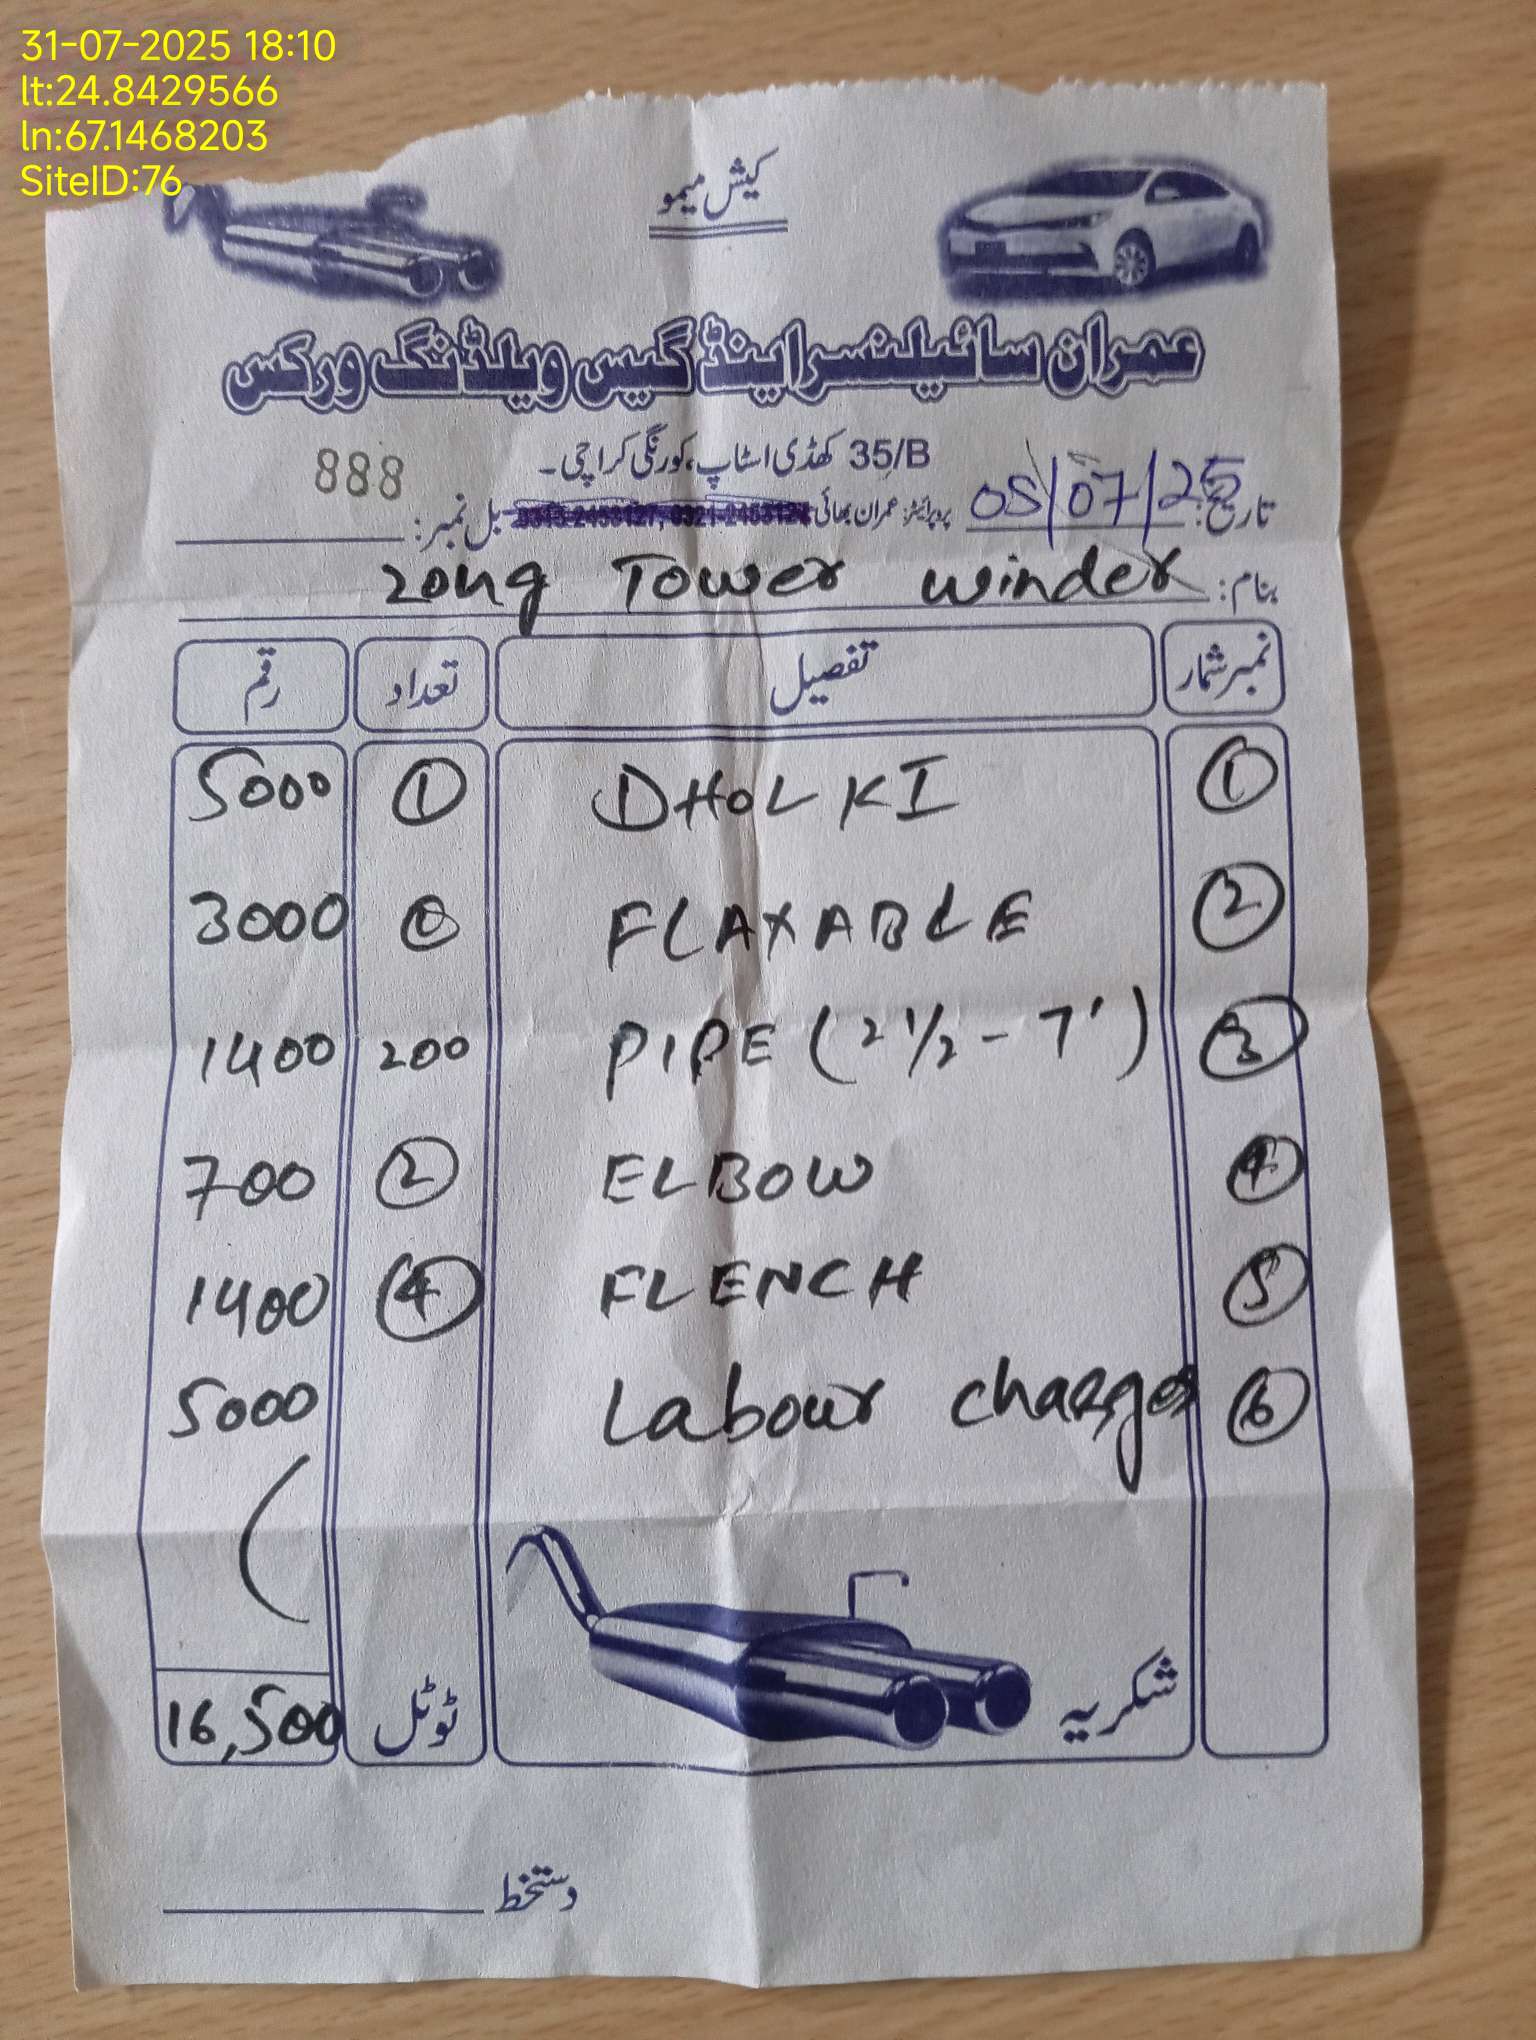 31-07-2025 18:10
lt:24.8429566
ln:67.1468203
SiteID:76
کیش میمو
عمران سائیلنسر اینڈ گیس ویلڈنگ ورکس
35/B کھڈی اسٹاپ، کورنگی کراچی۔
888
تاریخ: 05/07/25 پروپرائیٹر: عمران بھائی بل نمبر:
بنام: zong Tower winder
نمبر شمار تفصیل تعداد رقم
1 DHOLKI 1 5000
2 FLAXABLE 3000
3 PIPE (2 1/2 - 7') 200 1400
4 ELBOW 2 700
5 FLENCH 4 1400
6 Labour charges 5000
شکریہ
ٹوٹل 16,500
دستخط